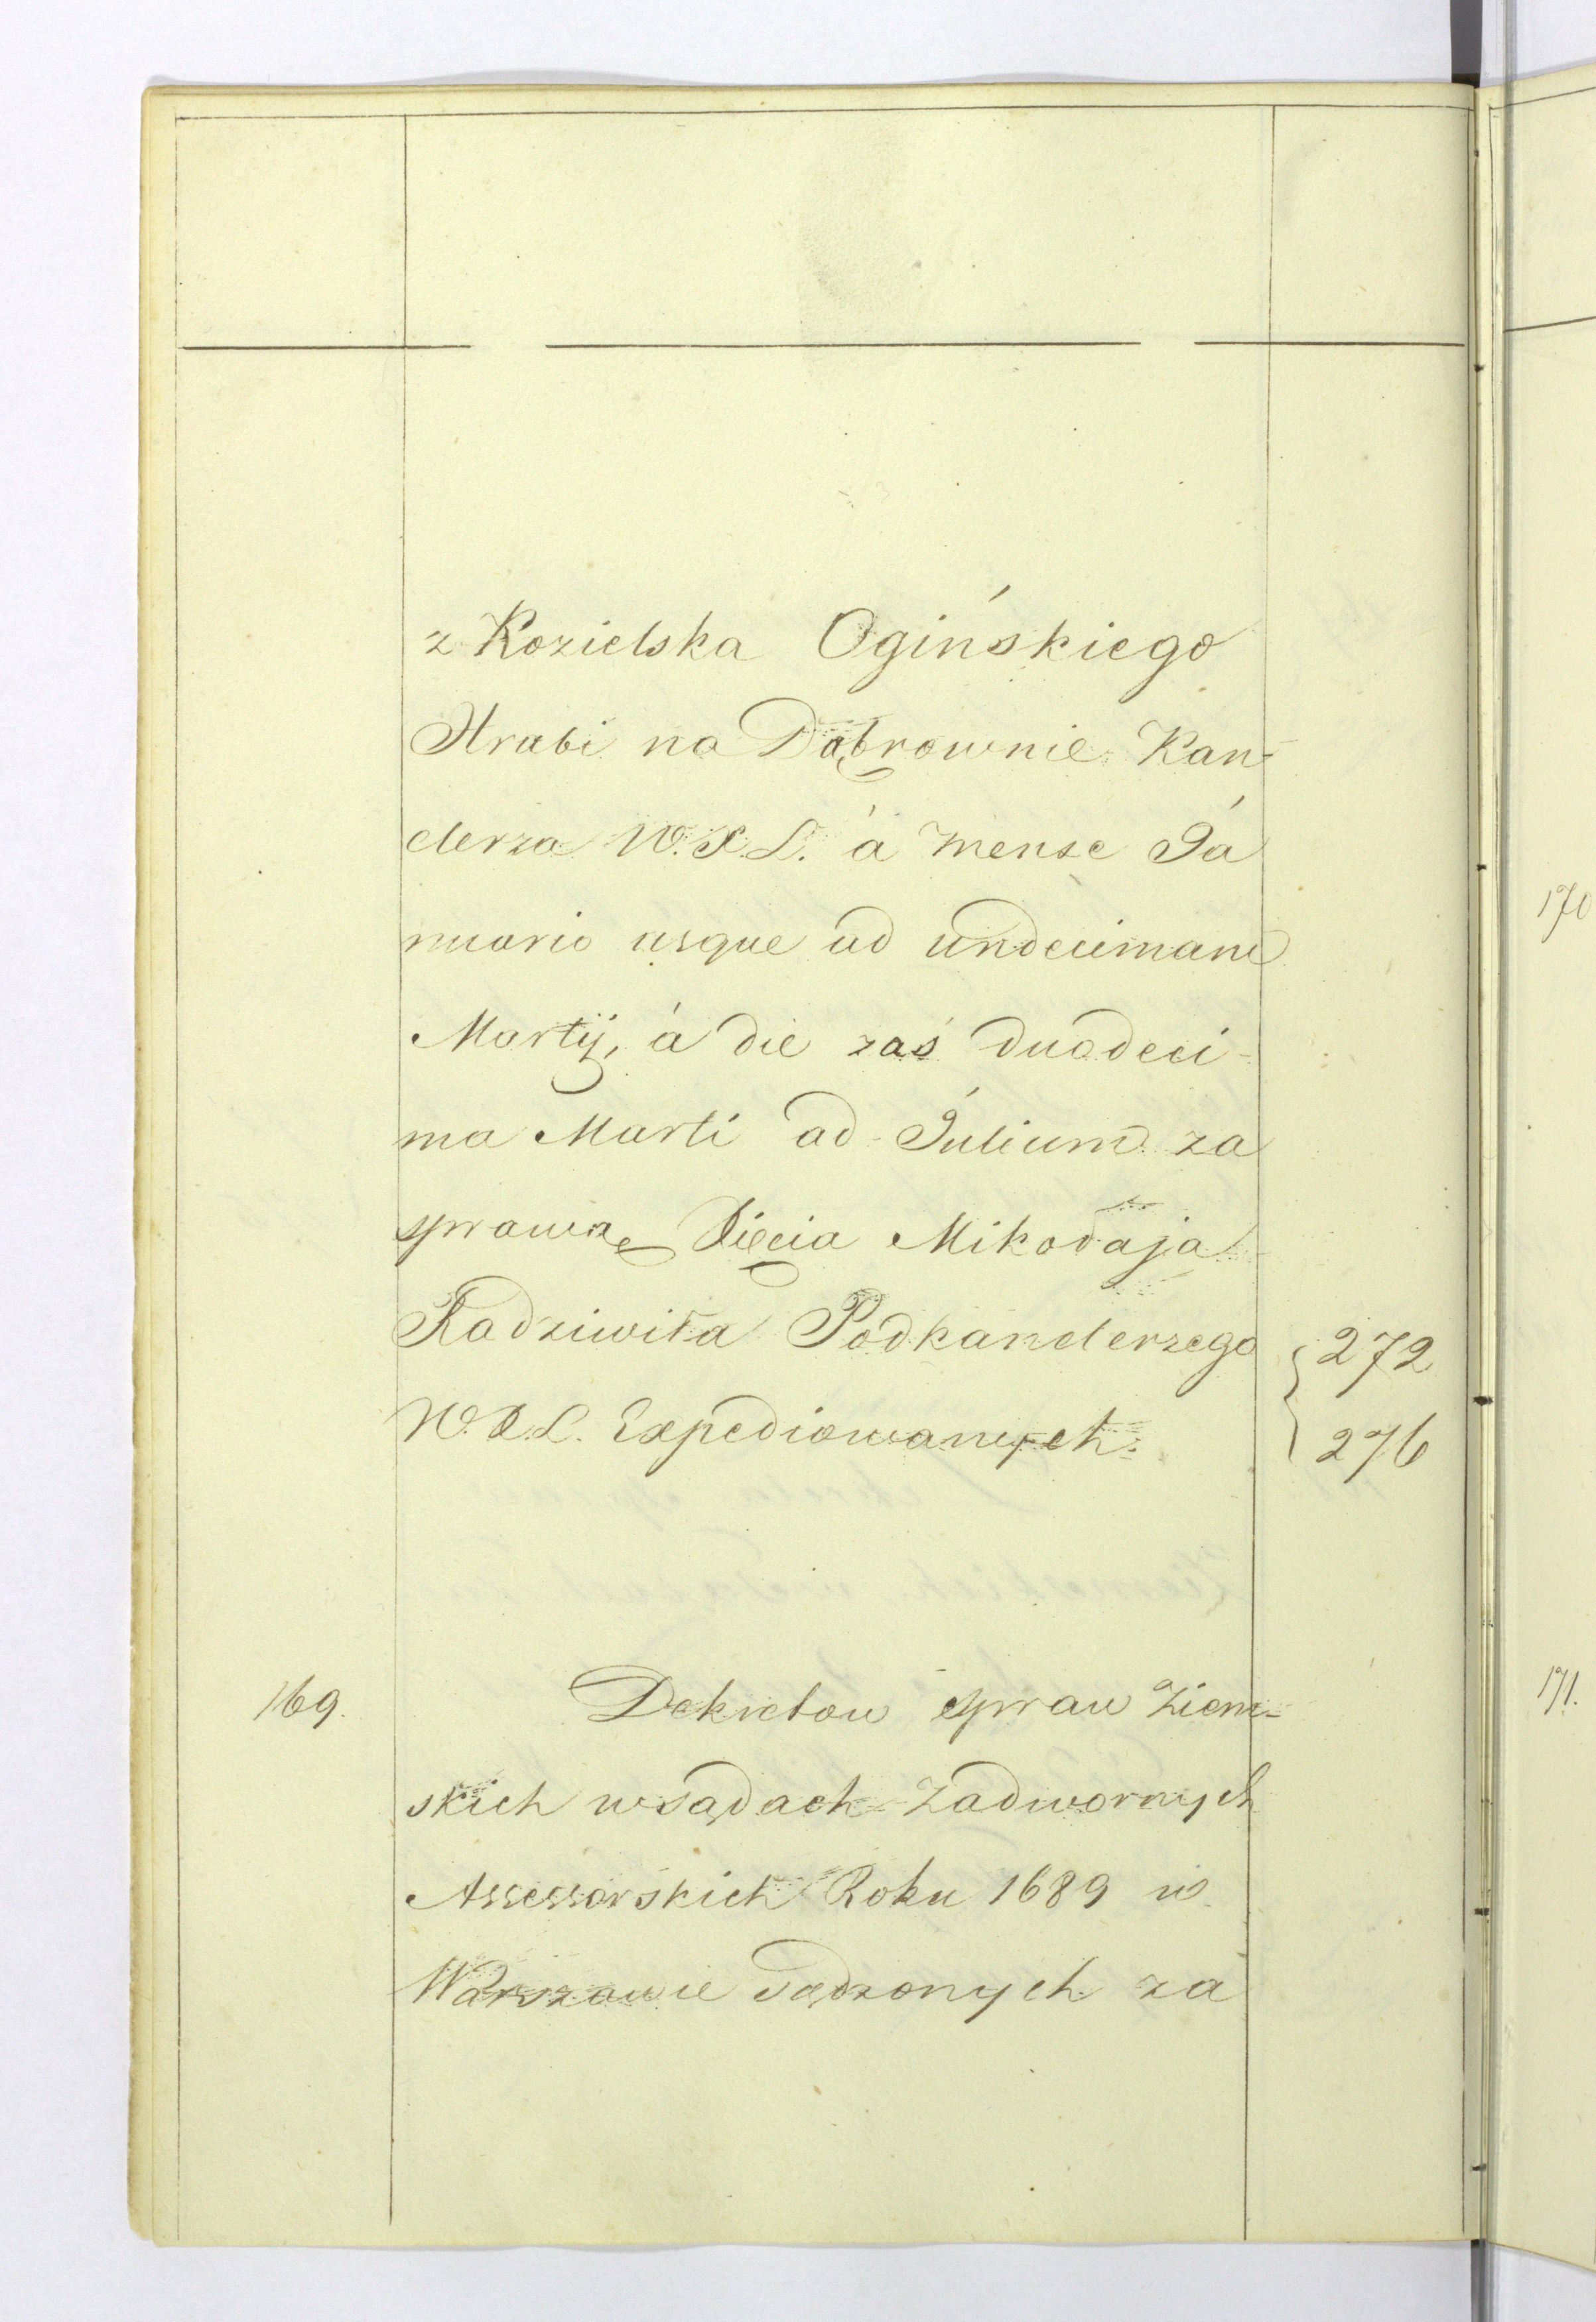 z Kozielska Ogińskiego
Hrabi na Dąbrownie Kan-
clerza W.X.L. á mense Ja
nuario usque ad undecimam
Martij, á die zaś duodeci-
ma Marti ad Julium za
sprawą Xięcia Mikołaja
Radziwiła Podkanclerzego 272
W.X.L. Expediowanych. 276
169. Dekretow spraw Ziem-
skich w sądach Zadwornych
Assessorskich Roku 1689 w
Warszawie sądzonych za
170
171.